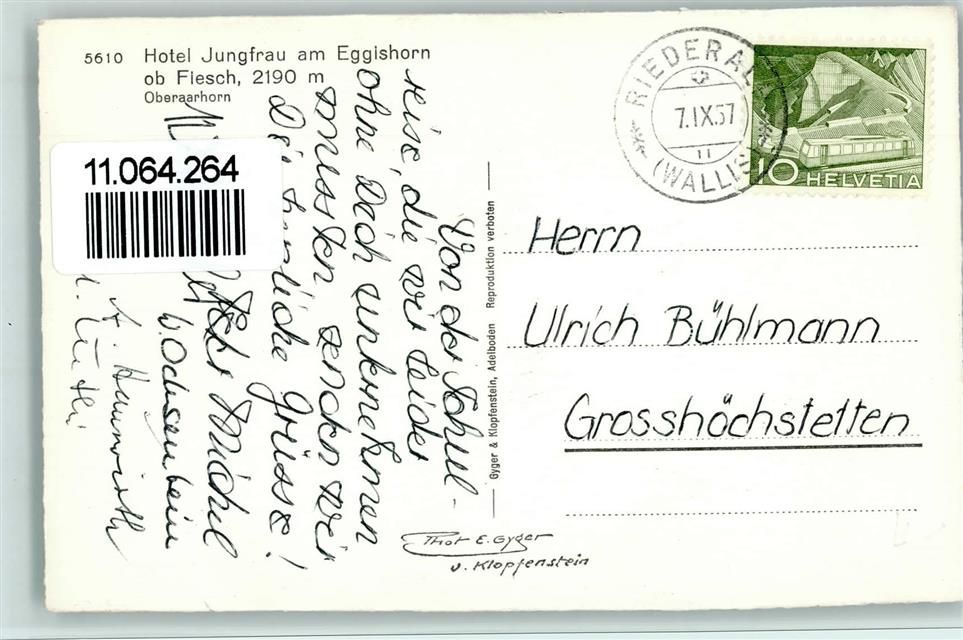 5610 Hotel Jungfrau am Eggishorn
ob Fiesch, 2190 m
Oberaarhorn
11.064.264
Von der Schul-
reise, die wir leider
ohne Dich unternehmen
mussten, senden wir
Dir herrliche Grüsse!
Wochsenbein
RIEDERAL
7.IX.57
11
(WALLIS)
10 HELVETIA
Herrn
Ulrich Bühlmann
Grosshöchstetten
Gyger & Klopfenstein, Adelboden Reproduktion verboten
Phot E. Gyger
u. Klopfenstein